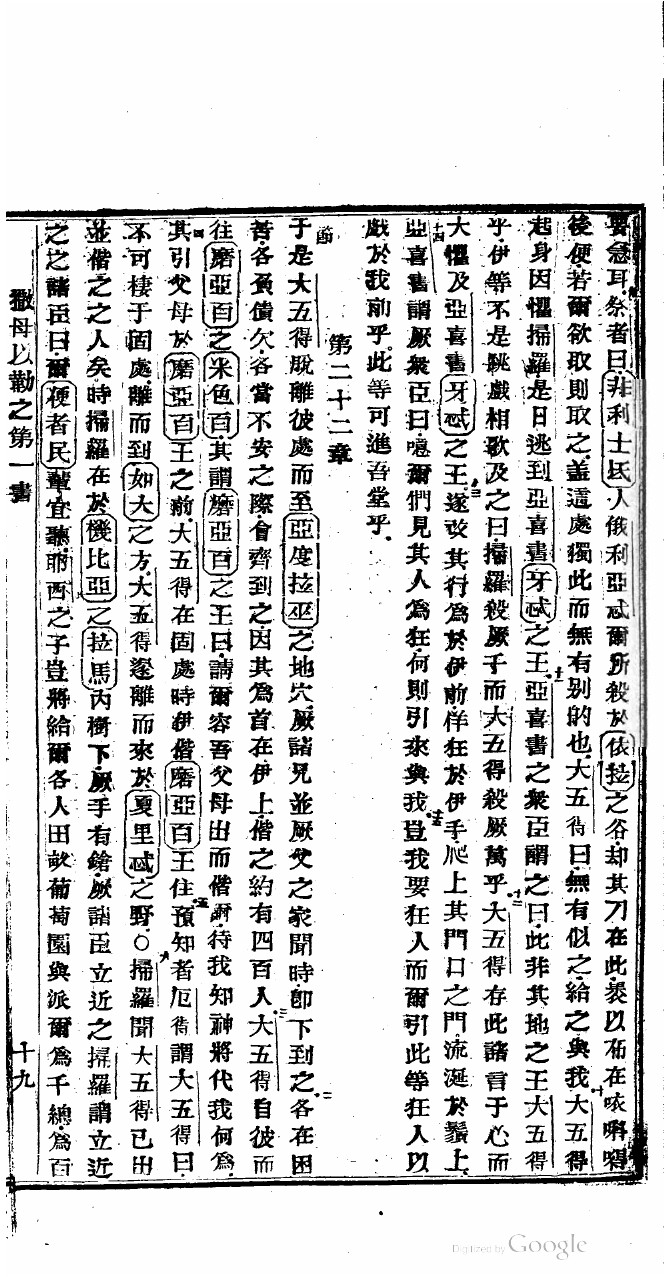 要急耳祭者曰非利士氏人俄利亞忒爾所殺於依拉之谷却其刀在此裹以布在㕤
後便若爾欲取則取之盖這處獨此而無有别的也大五得曰無有似之給之與我十大五得
起身因懼掃羅是日逃到亞喜書牙忒之王十一亞喜書之衆臣謂之曰此非其地之王大五得
乎伊等不是跳戲相歌及之曰掃羅殺厥千而大五得殺厥萬乎十二大五得存此諸言于心而
大懼及亞喜書牙忒之王十三遂改其行為於伊前佯狂於伊手爬上其門口之門流涎於鬚上
十四亞喜書謂厥衆臣曰噫爾們見其人為狂何則引來與我十五豈我要狂人而爾引此等狂人以
戲於我前乎此等可進吾堂乎
第二十二章
一節于是大五得脫離彼處而至亞度拉巫之地穴厥諸兄並厥父之家聞時卽下到之二各在困
苦各負債欠各當不安之際會齊到之因其為首在伊上偕之約有四百人三大五得自彼而
往磨亞百之米色百其謂磨亞百之王曰請爾容吾父母出而偕爾待我知神將代我何為
四其引父母於磨亞百王之前大五得在固處時伊偕磨亞百王住五預知者厄得謂大五得曰
不可棲于固處離而到如大之方大五得遂離而來於夏里忒之野○六掃羅聞大五得已出
並偕之之人矣時掃羅在於機比亞之拉馬丙樹下厥手有鎗厥諸臣立近之掃羅謂立近
之之諸臣曰爾便者民輩宜聽耶西之子豈將給爾各人田畝葡萄園與派爾為千總為百
撒母以勒之第一書
十九
Digitized by Google